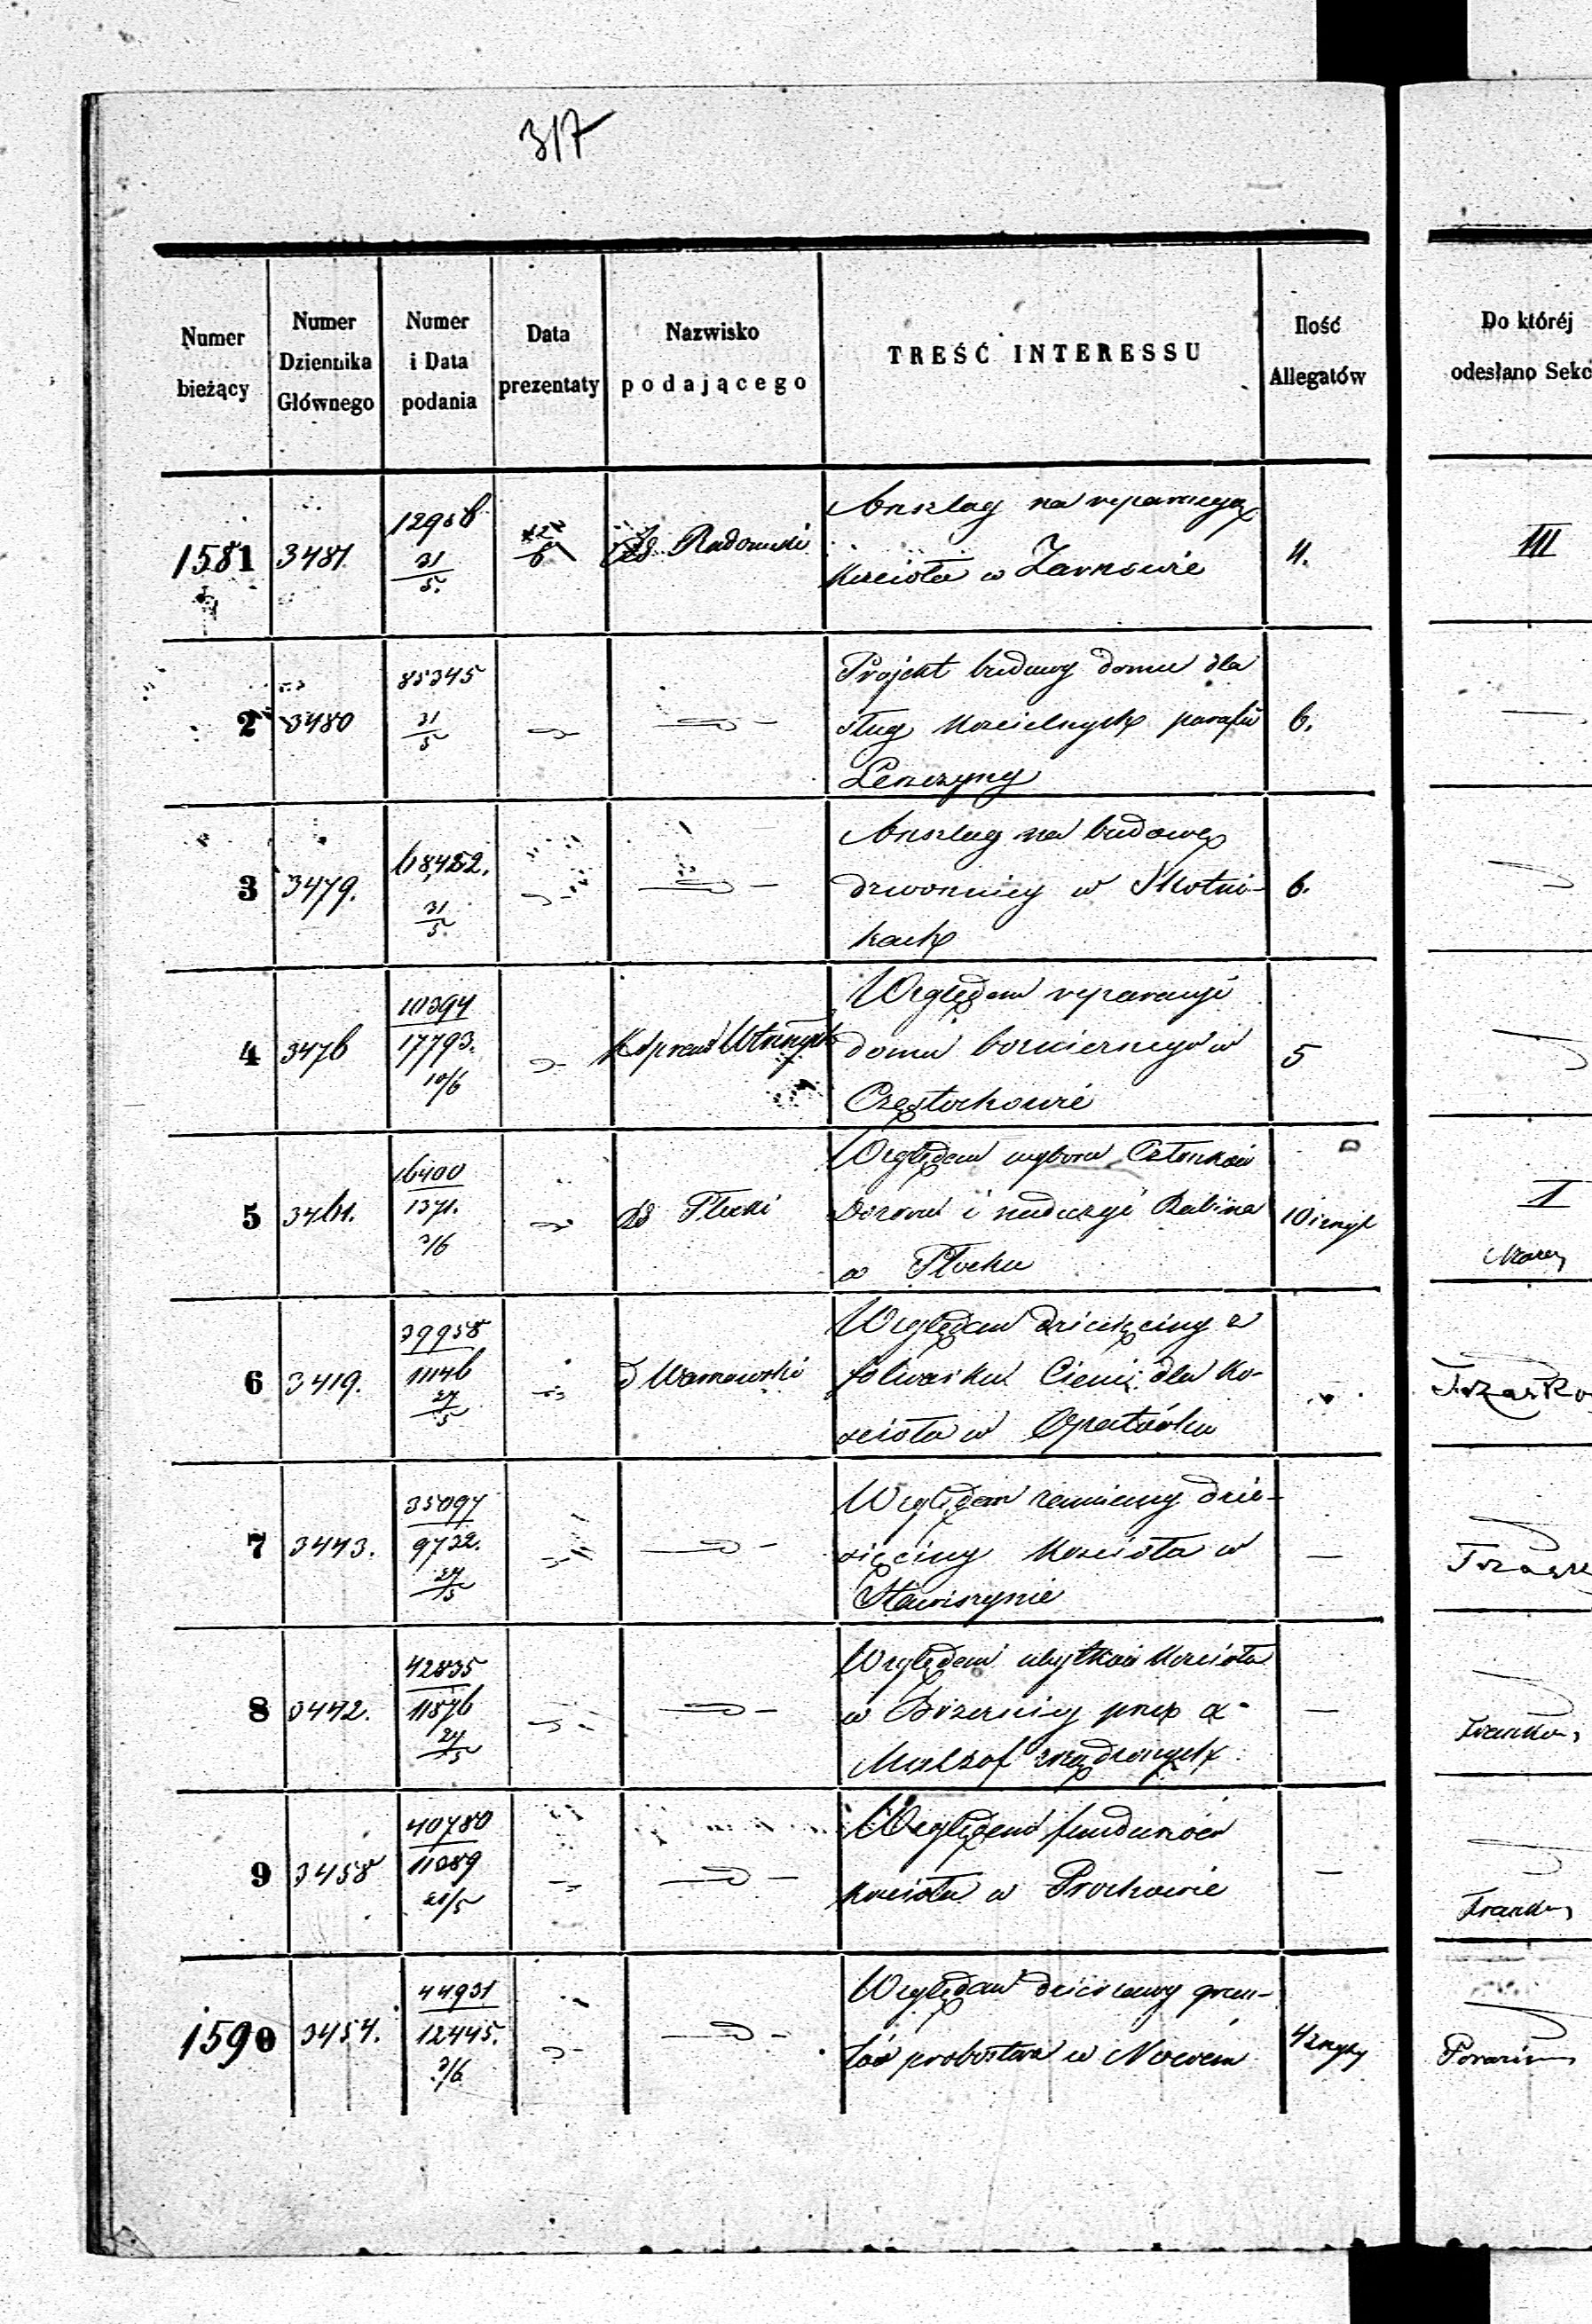 317
Numer bieżący
Numer Dziennika Głównego
Numer i Data podania
Data prezentaty
Nazwisko podającego
TREŚĆ INTERESSU
Ilość Allegatów
Do któréj
odesłano Sekc
1581 3481 12958 31/5 Rd Radomski 4. III
Anszlag na reparacyą
kościoła w Żarnowie
2 3480 85345 31/5 6.
Projekt budowy domu dla
sług kościelnych parafii
Leszczyny
3 3479. 68452. 31/5 6.
Anszlag na budowę
dzwonnicy w Skotni-
kach
4 3476 10394 17793. 10/6 5
Względem reparacyi
domu bożniczego w
Częstochowie
5 3461. 16400 1371. 2/6 Rd Płocki 10 i I
Względem wyboru Członków
Dozoru i Rabina
w Płocku
6 3419. 39958 11146 27/5 d Warszawski
Względem dziesięciny z
folwarku Cienia dla ko-
ścioła w Opatówku
7 3443. 35097 9732. 27/5 —
Względem zamiany dzie-
sięciny kościoła w
Stawiszynie
8 3442. 42835 11876 27/5 —
Względem ubytków kościoła
w Brzeźnicy przez X
zrządzonych
9 3458 40780 11089 21/5 —
Względem funduszów
kościoła w
1590 3454. 44931 12445. 2/6
Względem dzierżawy grun-
tów probostwa w Nowem